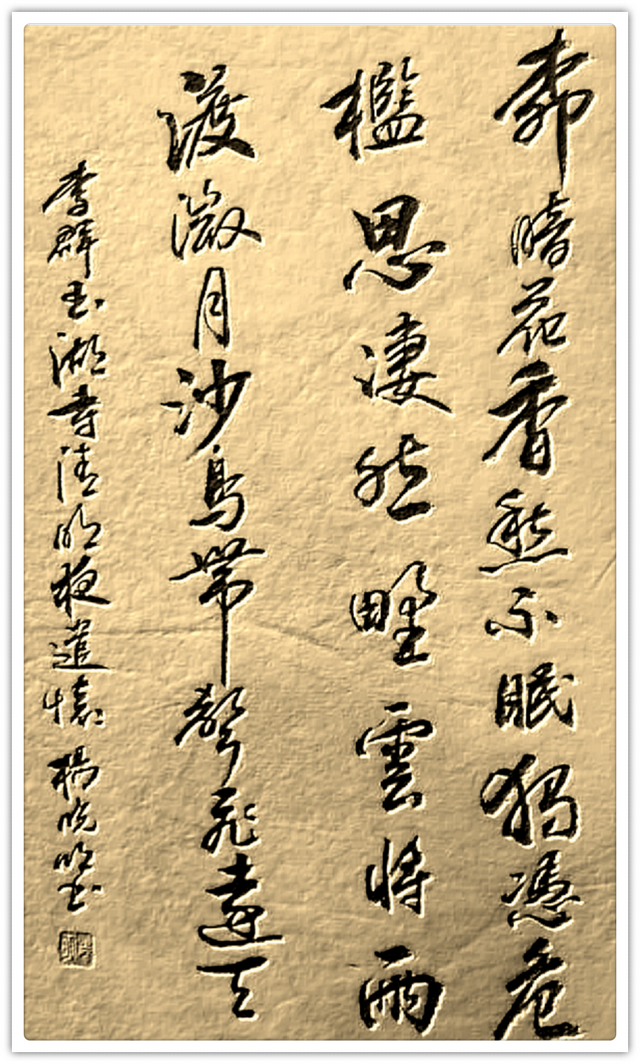 柳暗花香愁不眠獨憑危
檻思淒然野雲將雨
渡微月沙鳥帶聲飛遠天
李群玉湖寺清明夜遣懷 楊曉明書